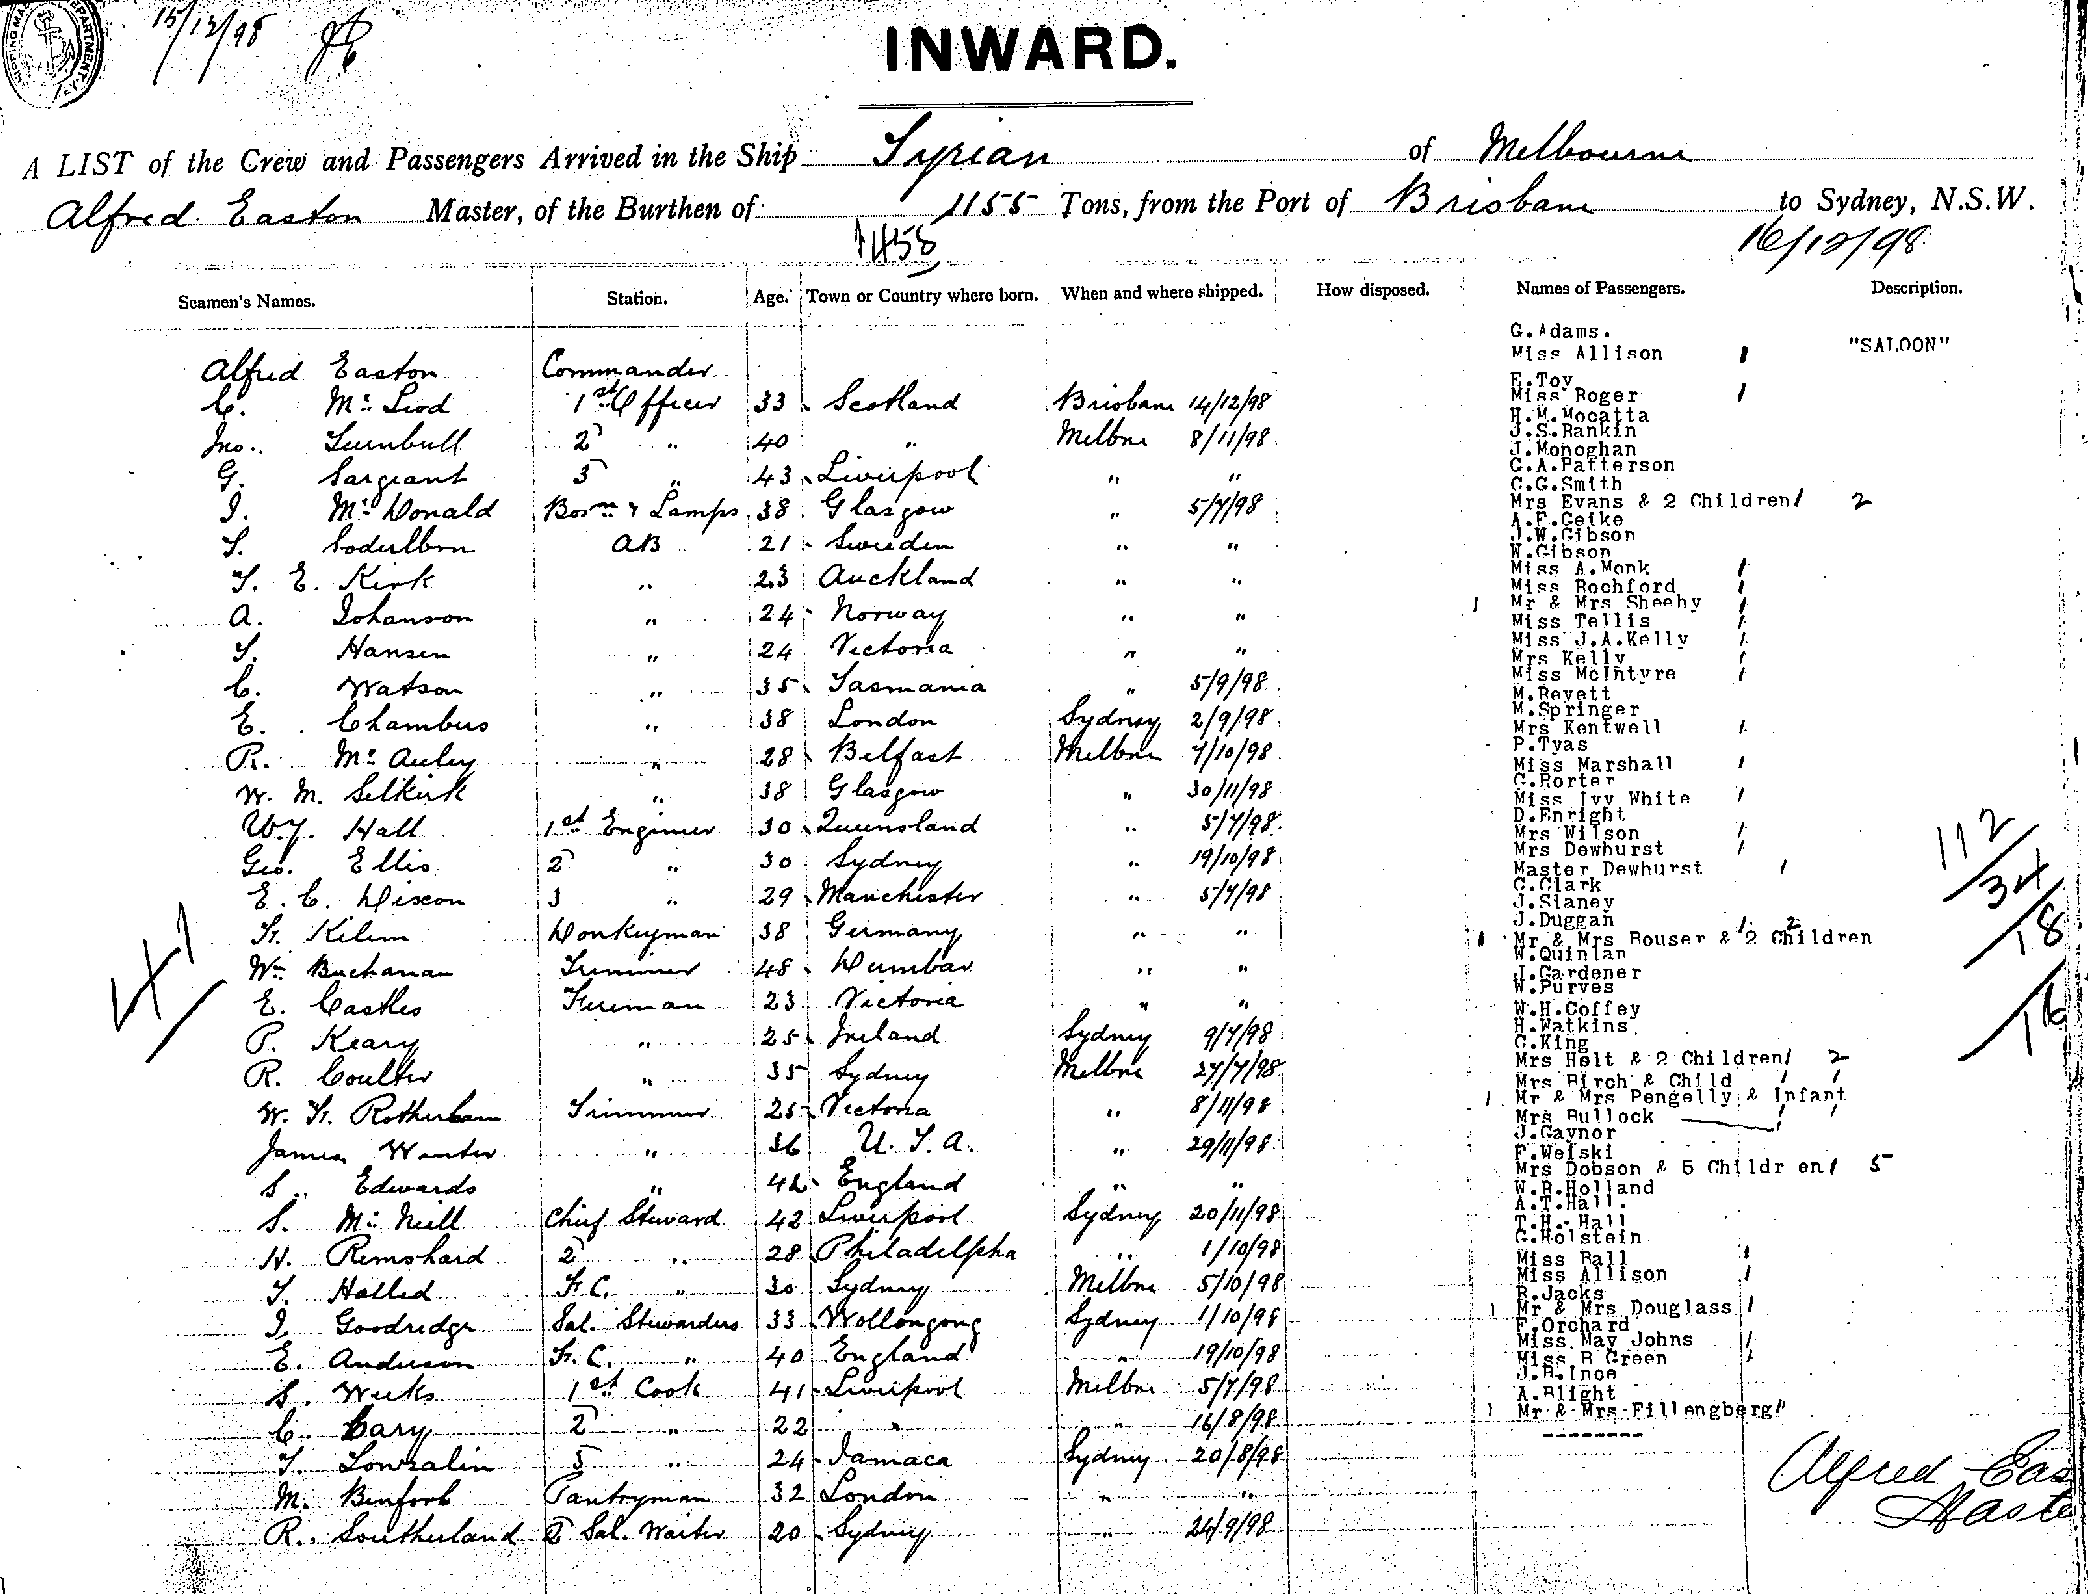 15/12/98
INWARD.
A LIST of the Crew and Passengers Arrived in the Ship Syrian of Melbourne
Alfred Easton Master, of the Burthen of 1155 Tons, from the Port of Brisbane to Sydney, N.S.W.
1458
16/12/98
Seamen's Names. Station. Age. Town or Country where born. When and where shipped. How disposed. Names of Passengers. Description.
Alfred Easton Commander
C. Mc Leod 1st Officer 33 Scotland Brisbane 14/12/98
Jno. Turnbull 2 " 40 " Melbne 8/11/98
G. Sargeant 3 " 43 Liverpool " "
J. McDonald Bosn & Lamps 38 Glasgow " 5/7/98
AB 21 Sweden " "
T. E. Kirk " 23 Auckland " "
A. Johanson " 24 Norway " "
T. Hansen " 24 Victoria " "
C. Watson " 35 Tasmania " 5/9/98
E. Chambers " 38 London Sydney 2/9/98
R. Mc Auley " 28 Belfast Melbne 7/10/98
W. M. Selkirk " 38 Glasgow " 30/11/98
W. J. Hall 1st Engineer 30 Queensland " 5/7/98
Geo. Ellis 2 " 30 Sydney " 19/10/98
E. C. Dixon 3 " 29 Manchester " 5/7/98
Donkeyman 38 Germany " "
Wm Buchanan Trimmer 48 Dunbar " "
E. Castles Fireman 23 Victoria " "
P. Keary " 25 Ireland Sydney 9/7/98
R. Coulter " 35 Sydney Melbne 27/7/98
W. Fr. Rotherham Trimmer 25 Victoria " 8/11/98
James " 36 U. S. A. " 29/11/98
S. Edwards " 42 England " "
S. Mc Neill Chief Steward 42 Liverpool Sydney 20/11/98
H. Remshard 2 " 28 Philadelpha " 1/10/98
T. Halled Fr. C. " 30 Sydney Melbne 5/10/98
J. Goodridge Sal. Stewardess 33 Wollongong Sydney 1/10/98
E. Anderson Fr. C. " 40 England " 19/10/98
S. Weeks 1st Cook 41 Liverpool Melbne 5/7/98
C. Cary 2 " 22 " " 16/8/98
3 " 24 Jamaca Sydney 20/8/98
M. Pantryman 32 London " "
R. Southerland 2 Sal. Waiter 20 Sydney " 24/9/98
41
G.Adams.
Miss Allison 1 "SALOON"
E.Toy
Miss Roger 1
H.M.Mocatta
J.S.Rankin
J.Monoghan
C.A.Patterson
C.G.Smith
Mrs Evans & 2 Children 1 2
A.F.Geike
J.W.Gibson
W.Gibson
Miss A.Monk 1
Miss Rochford 1
1 Mr & Mrs Sheehy 1
Miss Tellis 1
Miss J.A.Kelly 1
Mrs Kelly 1
Miss McIntyre 1
M.Revett
M.Springer
Mrs Kentwell 1
P.Tyas
Miss Marshall 1
C.Porter
Miss Ivy White 1
D.Enright
Mrs Wilson 1
Mrs Dewhurst 1
Master Dewhurst 1
C.Clark
J.Slaney
J.Duggan
1 Mr & Mrs Rouser & 2 Children 1 2
W.Quinlan
J.Gardener
W.Purves
W.H.Coffey
H.Watkins
C.King
Mrs Holt & 2 Children 1 2
Mrs Birch & Child 1 1
1 Mr & Mrs Pengelly & Infant 1 1
Mrs Bullock 1
J.Gaynor
F.Welski
Mrs Dobson & 5 Children 1 5
W.R.Holland
A.T.Hall.
T.H. Hall
G.Holstein
Miss Ball 1
Miss Allison 1
R.Jacks
1 Mr & Mrs Douglass 1
F.Orchard
Miss May Johns 1
Miss B Green 1
J.B.Ince
A.Blight
1 Mr & Mrs Fillengberg 1
112
/34
/18
/16
Alfred Eas
Maste